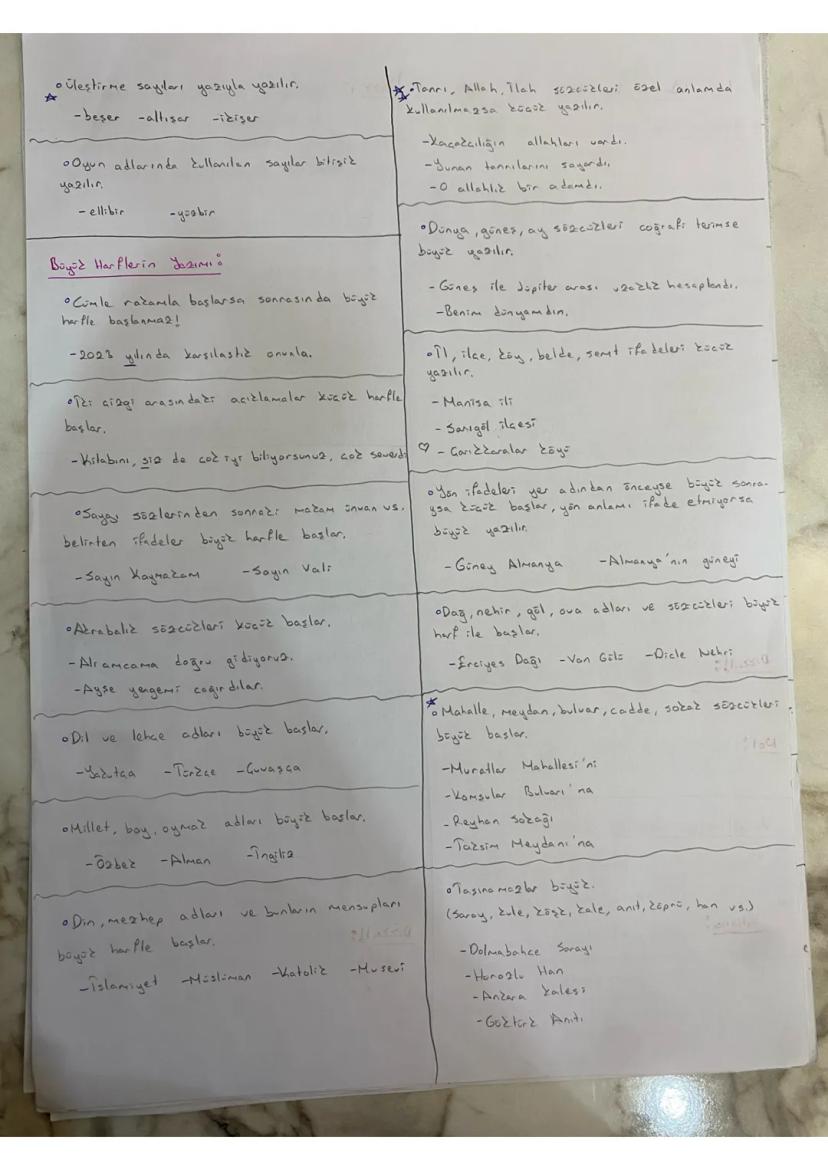 Üleştirme sayıları yazıyla yazılır.
-beşer -altışar -ikişer
Oyun adlarında kullanılan sayılar bitişik
yazılır.
-ellibir -yüzbir
Büyük Harflerin Yazımı:
Cümle rakamla başlarsa sonrasında büyük
harfle başlanmaz!
-2023 yılında karşılaştık onunla.
İki çizgi arasındaki açıklamalar küçük harfle
başlar.
-Kitabını, siz de çok iyi biliyorsunuz, çok severdi
Saygı sözlerinden sonraki makam ünvan vs.
belirten ifadeler büyük harfle başlar.
-Sayın Kaymakam -Sayın Vali
Akrabalık sözcükleri küçük başlar.
-Ali amcama doğru gidiyoruz.
-Ayşe yengemi çağırdılar.
Dil ve lehçe adları büyük başlar.
-Yakutça -Türkçe -Çuvaşça
Millet, boy, oymak adları büyük başlar.
-Özbek -Alman -İngiliz
Din, mezhep adları ve bunların mensupları
büyük harfle başlar.
-İslamiyet -Müslüman -Katolik -Musevi
Tanrı, Allah, İlah sözcükleri özel anlamda
kullanılmazsa küçük yazılır.
-Kaçakçılığın allahları vardı.
-Yunan tanrılarını sayardı.
-O allahlık bir adamdı.
Dünya, güneş, ay sözcükleri coğrafi terimse
büyük yazılır.
-Güneş ile Jüpiter arası uzaklık hesaplandı.
-Benim dünyamdın.
İl, ilçe, köy, belde, semt ifadeleri küçük
yazılır.
-Manisa ili
-Sarıgöl ilçesi
-Çarıkkaralar köyü
Yön ifadeleri yer adından önceyse büyük sonra-
ysa küçük başlar, yön anlamı ifade etmiyorsa
büyük yazılır.
-Güney Almanya -Almanya'nın güneyi
Dağ, nehir, göl, ova adları ve sözcükleri büyük
harf ile başlar.
-Erciyes Dağı -Van Gölü -Dicle Nehri
Mahalle, meydan, bulvar, cadde, sokak sözcükleri
büyük başlar.
-Muratlar Mahallesi'ni
-Komşular Bulvarı'na
-Reyhan Sokağı
-Taksim Meydanı'na
Taşınamazlar büyük.
(Saray, kule, köşk, kale, anıt, köprü, han vs.)
-Dolmabahçe Sarayı
-Horozlu Han
-Ankara Kalesi
-Göktürk Anıtı